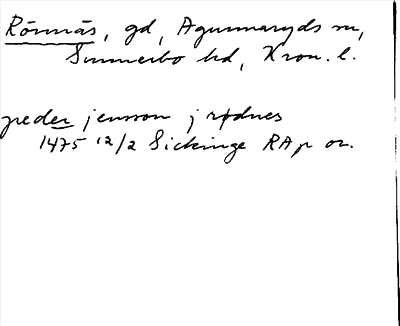 Rörnäs, gd, Agunnaryds sn,
Sunnerbo hd, Kron. l.
peder jensson j rødnes
1475 12/2 Sickinge RAp or.